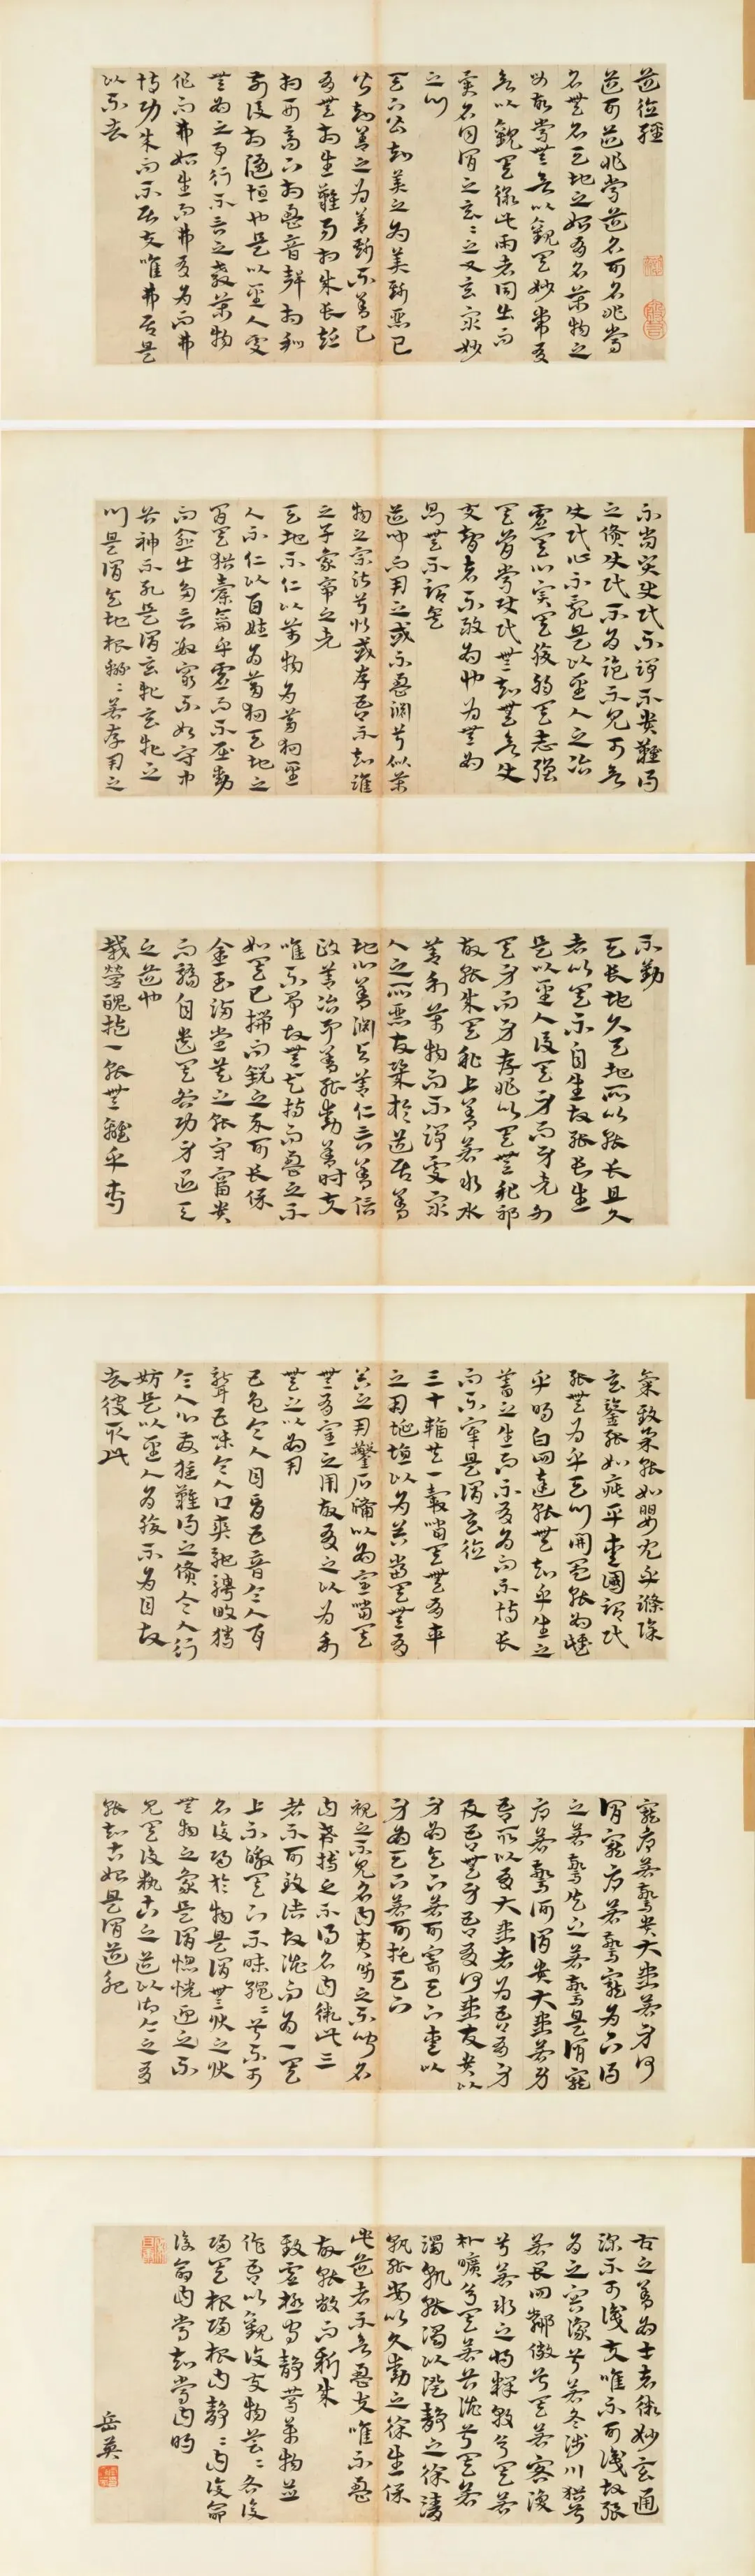 道德經
道可道非常道名可名非常
名無名天地之始有名萬物之
母故常無欲以觀其妙常有
欲以觀其徼此兩者同出而
異名同謂之玄玄之又玄眾妙
之門
天下皆知美之為美斯惡已
皆知善之為善斯不善已
有無相生難易相成長短
相形高下相盈音聲相和
前後相隨恒也是以聖人處
無為之事行不言之教萬物
作而弗始生而弗有為而弗
恃功成而不居夫唯弗居是
以不去
不尚賢使民不爭不貴難得
之貨使民不為盜不見可欲
使民心不亂是以聖人之治
虛其心實其腹弱其志強
其骨常使民無知無欲使
夫智者不敢為也為無為
則無不治矣
道沖而用之或不盈淵兮似萬
物之宗湛兮似或存吾不知誰
之子象帝之先
天地不仁以萬物為芻狗聖
人不仁以百姓為芻狗天地之
間其猶橐籥乎虛而不屈動
而愈出多言數窮不如守中
谷神不死是謂玄牝玄牝之
門是謂天地根綿綿若存用之
不勤
天長地久天地所以能長且久
者以其不自生故能長生
是以聖人後其身而身先外
其身而身存非以其無私邪
故能成其私上善若水水
善利萬物而不爭處眾
人之所惡故幾於道居善
地心善淵與善仁言善信
政善治事善能動善時夫
唯不爭故無尤持而盈之不
如其已揣而銳之不可長保
金玉滿堂莫之能守富貴
而驕自遺其咎功身退天
之道也
載營魄抱一能無離乎專
氣致柔能如嬰兒乎滌除
玄鑒能如疵乎愛國謂民
能無為乎天門開闔能為雌
乎明白四達能無知乎生之
蓄之生而不有為而不恃長
而不宰是謂玄德
三十輻共一轂當其無有車
之用埏埴以為器當其無有
器之用鑿戶牖以為室當其
無有室之用故有之以為利
無之以為用
五色令人目盲五音令人耳
聾五味令人口爽馳騁畋獵
令人心發狂難得之貨令人行
妨是以聖人為腹不為目故
去彼取此
寵辱若驚貴大患若身何
謂寵辱若驚寵為下得
之若驚失之若驚是謂寵
辱若驚何謂貴大患若身
吾所以有大患者為吾有身
及吾無身吾有何患故貴以
身為天下若可寄天下愛以
身為天下若可托天下
視之不見名曰夷聽之不聞名
曰希搏之不得名曰微此三
者不可致詰故混而為一其
上不皦其下不昧繩繩兮不可
名復歸於物是謂無狀之狀
無物之象是謂惚恍迎之不
見其後執古之道以御今之有
能知古始是謂道紀
古之善為士者微妙玄通
深不可識夫唯不可識故強
為之容豫兮若冬涉川猶兮
若畏四鄰儼兮其若客渙
兮若冰之將釋敦兮其若
朴曠兮其若谷混兮其若
濁孰能濁以澄靜之徐清
孰能安以久動之徐生保
此道者不欲盈夫唯不盈
故能敝而新成
致虛極守靜篤萬物並
作吾以觀復夫物芸芸各復
歸其根歸根曰靜靜曰復命
復命曰常知常曰明
岳英